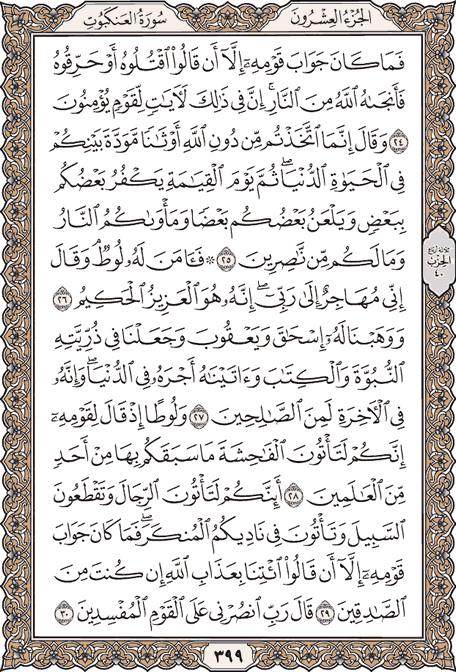 الجزء العشرون
سورة العنكبوت
فَمَا كَانَ جَوَابَ قَوْمِهِۦٓ إِلَّآ أَن قَالُوا۟ ٱقْتُلُوهُ أَوْ حَرِّقُوهُ
فَأَنجَىٰهُ ٱللَّهُ مِنَ ٱلنَّارِ ۚ إِنَّ فِى ذَٰلِكَ لَءَايَٰتٍ لِّقَوْمٍ يُؤْمِنُونَ
٢٤ وَقَالَ إِنَّمَا ٱتَّخَذْتُم مِّن دُونِ ٱللَّهِ أَوْثَٰنًا مَّوَدَّةَ بَيْنِكُمْ
فِى ٱلْحَيَوٰةِ ٱلدُّنْيَا ۖ ثُمَّ يَوْمَ ٱلْقِيَٰمَةِ يَكْفُرُ بَعْضُكُم
بِبَعْضٍ وَيَلْعَنُ بَعْضُكُم بَعْضًا وَمَأْوَىٰكُمُ ٱلنَّارُ
وَمَا لَكُم مِّن نَّٰصِرِينَ ٢٥ ۞ فَـَٔامَنَ لَهُۥ لُوطٌ ۘ وَقَالَ
إِنِّى مُهَاجِرٌ إِلَىٰ رَبِّىٓ ۖ إِنَّهُۥ هُوَ ٱلْعَزِيزُ ٱلْحَكِيمُ ٢٦
وَوَهَبْنَا لَهُۥٓ إِسْحَٰقَ وَيَعْقُوبَ وَجَعَلْنَا فِى ذُرِّيَّتِهِ
ٱلنُّبُوَّةَ وَٱلْكِتَٰبَ وَءَاتَيْنَٰهُ أَجْرَهُۥ فِى ٱلدُّنْيَا ۖ وَإِنَّهُۥ
فِى ٱلْءَاخِرَةِ لَمِنَ ٱلصَّٰلِحِينَ ٢٧ وَلُوطًا إِذْ قَالَ لِقَوْمِهِۦٓ
إِنَّكُمْ لَتَأْتُونَ ٱلْفَٰحِشَةَ مَا سَبَقَكُم بِهَا مِنْ أَحَدٍ
مِّنَ ٱلْعَٰلَمِينَ ٢٨ أَئِنَّكُمْ لَتَأْتُونَ ٱلرِّجَالَ وَتَقْطَعُونَ
ٱلسَّبِيلَ وَتَأْتُونَ فِى نَادِيكُمُ ٱلْمُنكَرَ ۖ فَمَا كَانَ جَوَابَ
قَوْمِهِۦٓ إِلَّآ أَن قَالُوا۟ ٱئْتِنَا بِعَذَابِ ٱللَّهِ إِن كُنتَ مِنَ
ٱلصَّٰدِقِينَ ٢٩ قَالَ رَبِّ ٱنصُرْنِى عَلَى ٱلْقَوْمِ ٱلْمُفْسِدِينَ ٣٠
ثلاثة أرباع
الحزب
٤٠
٣٩٩